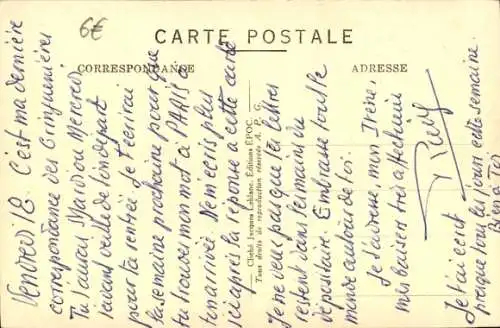 6€
CARTE POSTALE
CORRESPONDANCE
ADRESSE
Cliché Jacques Leblanc. Éditions ÉPOC.
Tous droits de reproduction réservés A. P. G.
Vendredi 18 C'est ma dernière
correspondance des
Tu l'auras Mardi ou Mercredi
avant veille de ton départ
pour ta rentrée. Je t'écrirai
la semaine prochaine pour que
tu trouves mon mot à PARIS à
ton arrivée. Ne m'écris plus
ici après la réponse à cette carte
Je ne veux pas que tes lettres
restent dans les mains du
dépositaire. Embrasse tout le
monde autour de toi.
Je t'adresse, mon Irène,
mes baisers très affectueux
Je t'ai écrit
presque tous les jours cette semaine.